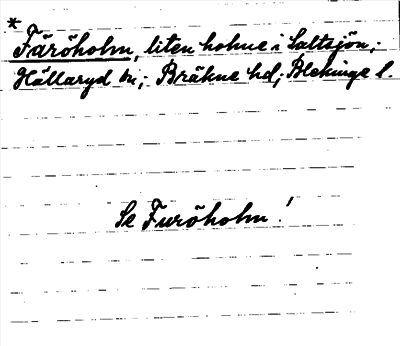 *
Färöholm, liten holme i Saltsjön,;
Hällaryd sn,; Bräkne hd,; Blekinge l.
Se Furöholm!